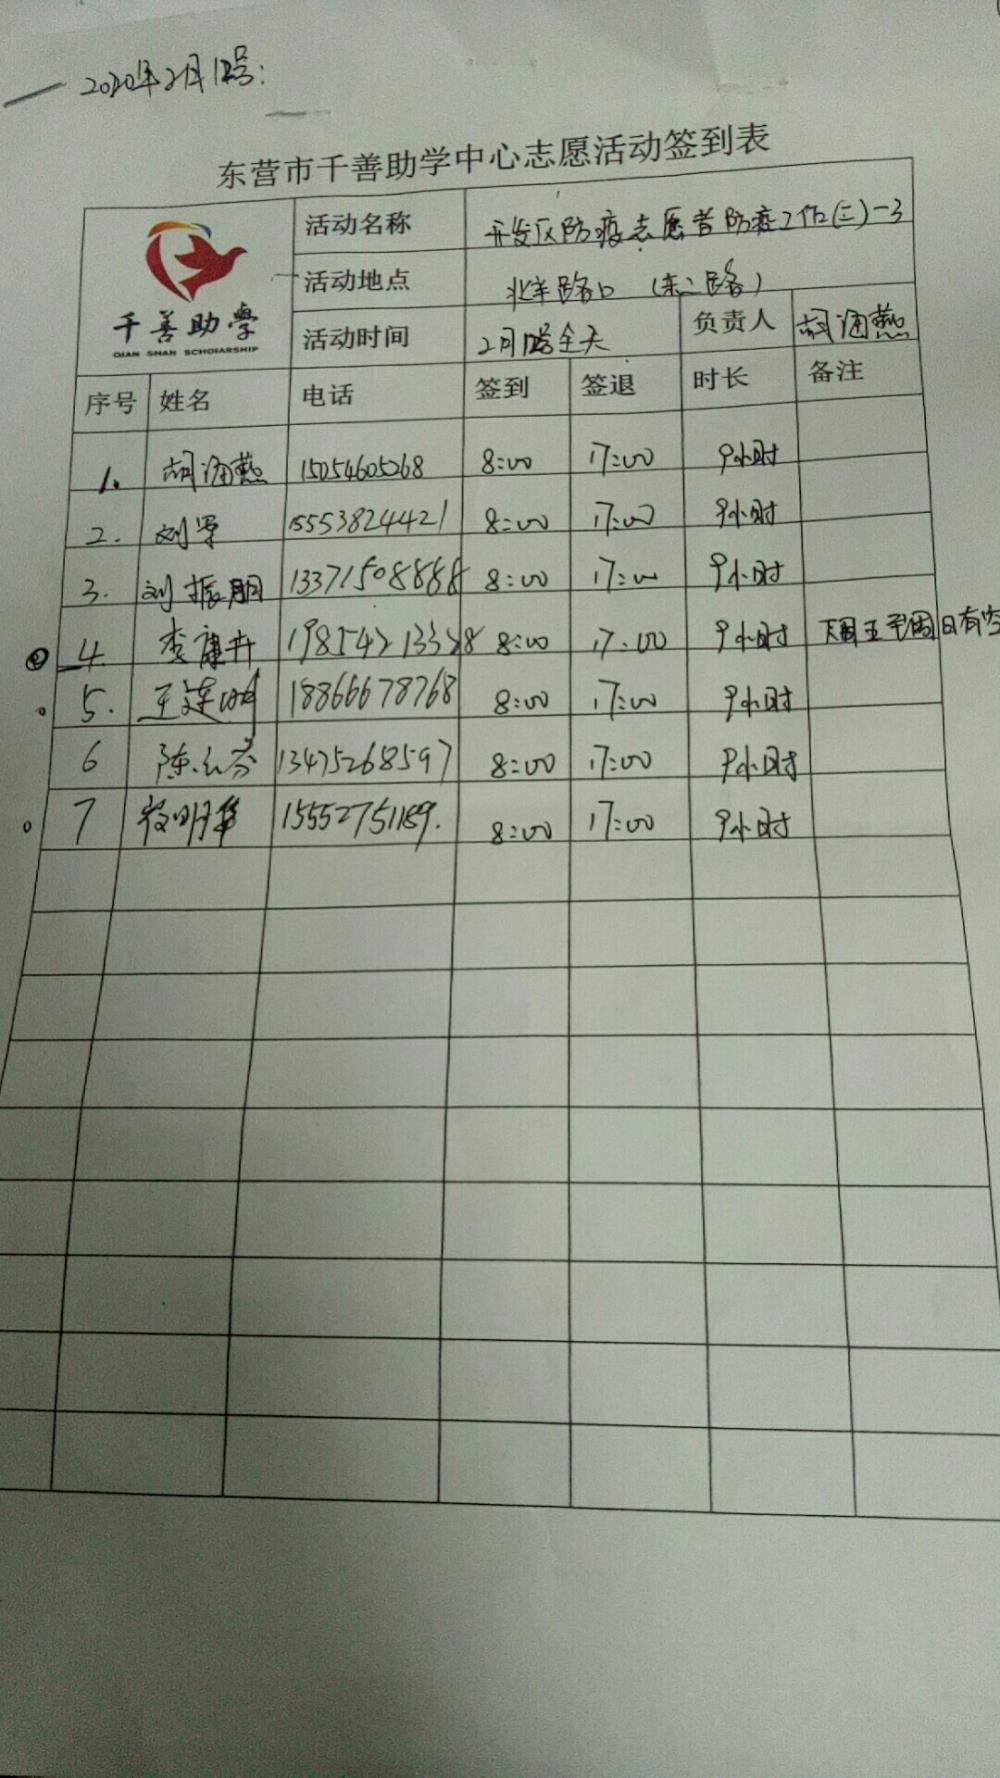 2020年2月12号:
东营市千善助学中心志愿活动签到表
千善助學
QIAN SHAN SCHOIARSHIP
活动名称 开发区防疫志愿者防疫工作(三)-3
活动地点 北辛路口 (东二路)
活动时间 2月12号全天 负责人 胡海燕
序号 姓名 电话 签到 签退 时长 备注
1. 胡海燕 15054605268 8:00 17:00 9小时
2. 刘军 15553824421 8:00 17:00 9小时
3. 刘振朋 13371508888 8:00 17:00 9小时
4. 李康卉 19854213328 8:00 17:00 9小时 周五至周日有空
5. 王建明 18866678768 8:00 17:00 9小时
6 陈云芬 13475268597 8:00 17:00 9小时
7 明华 15552751189. 8:00 17:00 9小时